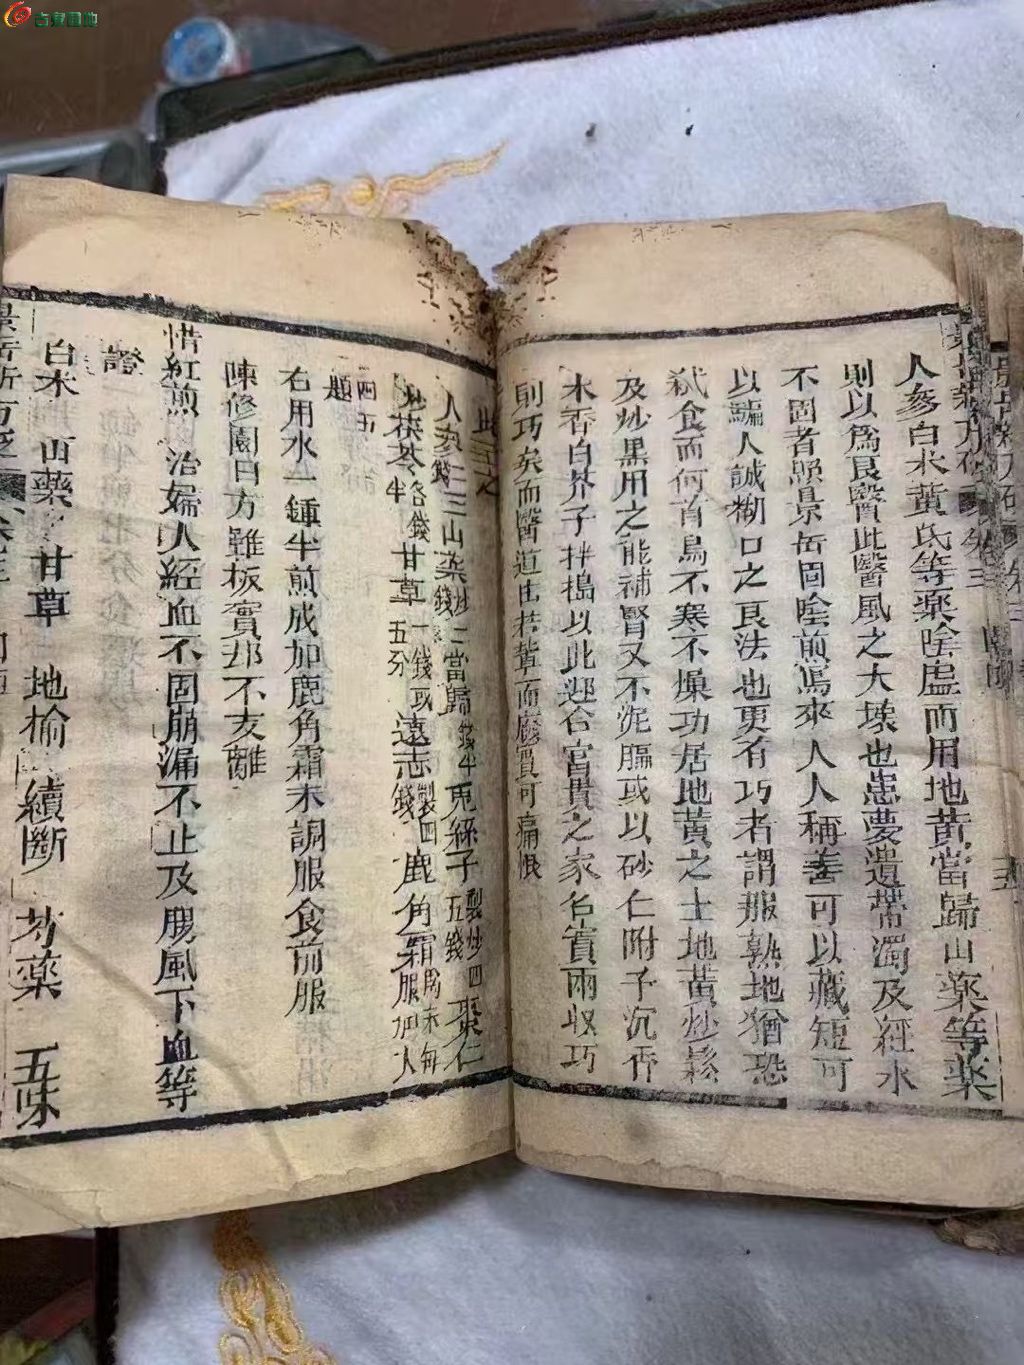 古泉園地
景岳新方砭 卷三
人參白朮黃氏等藥陰虛而用地黃當歸山藥等藥
則以為良醫此醫風之大壞也患夢遺帶濁及經水
不固者照景岳固陰煎寫來人人稱善可以藏短可
以騙人誠糊口之良法也更有巧者謂服熟地猶恐
弑食而何首烏不寒不燥功居地黃之上地黃炒鬆
及炒黑用之能補腎又不泥膈或以砂仁附子沉香
木香白芥子拌搗以此迎合富貴之家名實兩收巧
則巧矣而醫道由若輩而廢實可痛恨
此主之
人參 山藥炒二 當歸 兎絲子製炒四五錢 棗仁
炒 茯苓 甘草一錢或五分 遠志製四 鹿角霜為末每服加入
四五
題
右用水一鍾半煎成加鹿角霜末調服食前服
陳修園曰方雖板實却不支離
惜紅煎 治婦人經血不固崩漏不止及腸風下血等
證
白朮 山藥 甘草 地榆 續斷 芍藥 五味
景岳新方砭